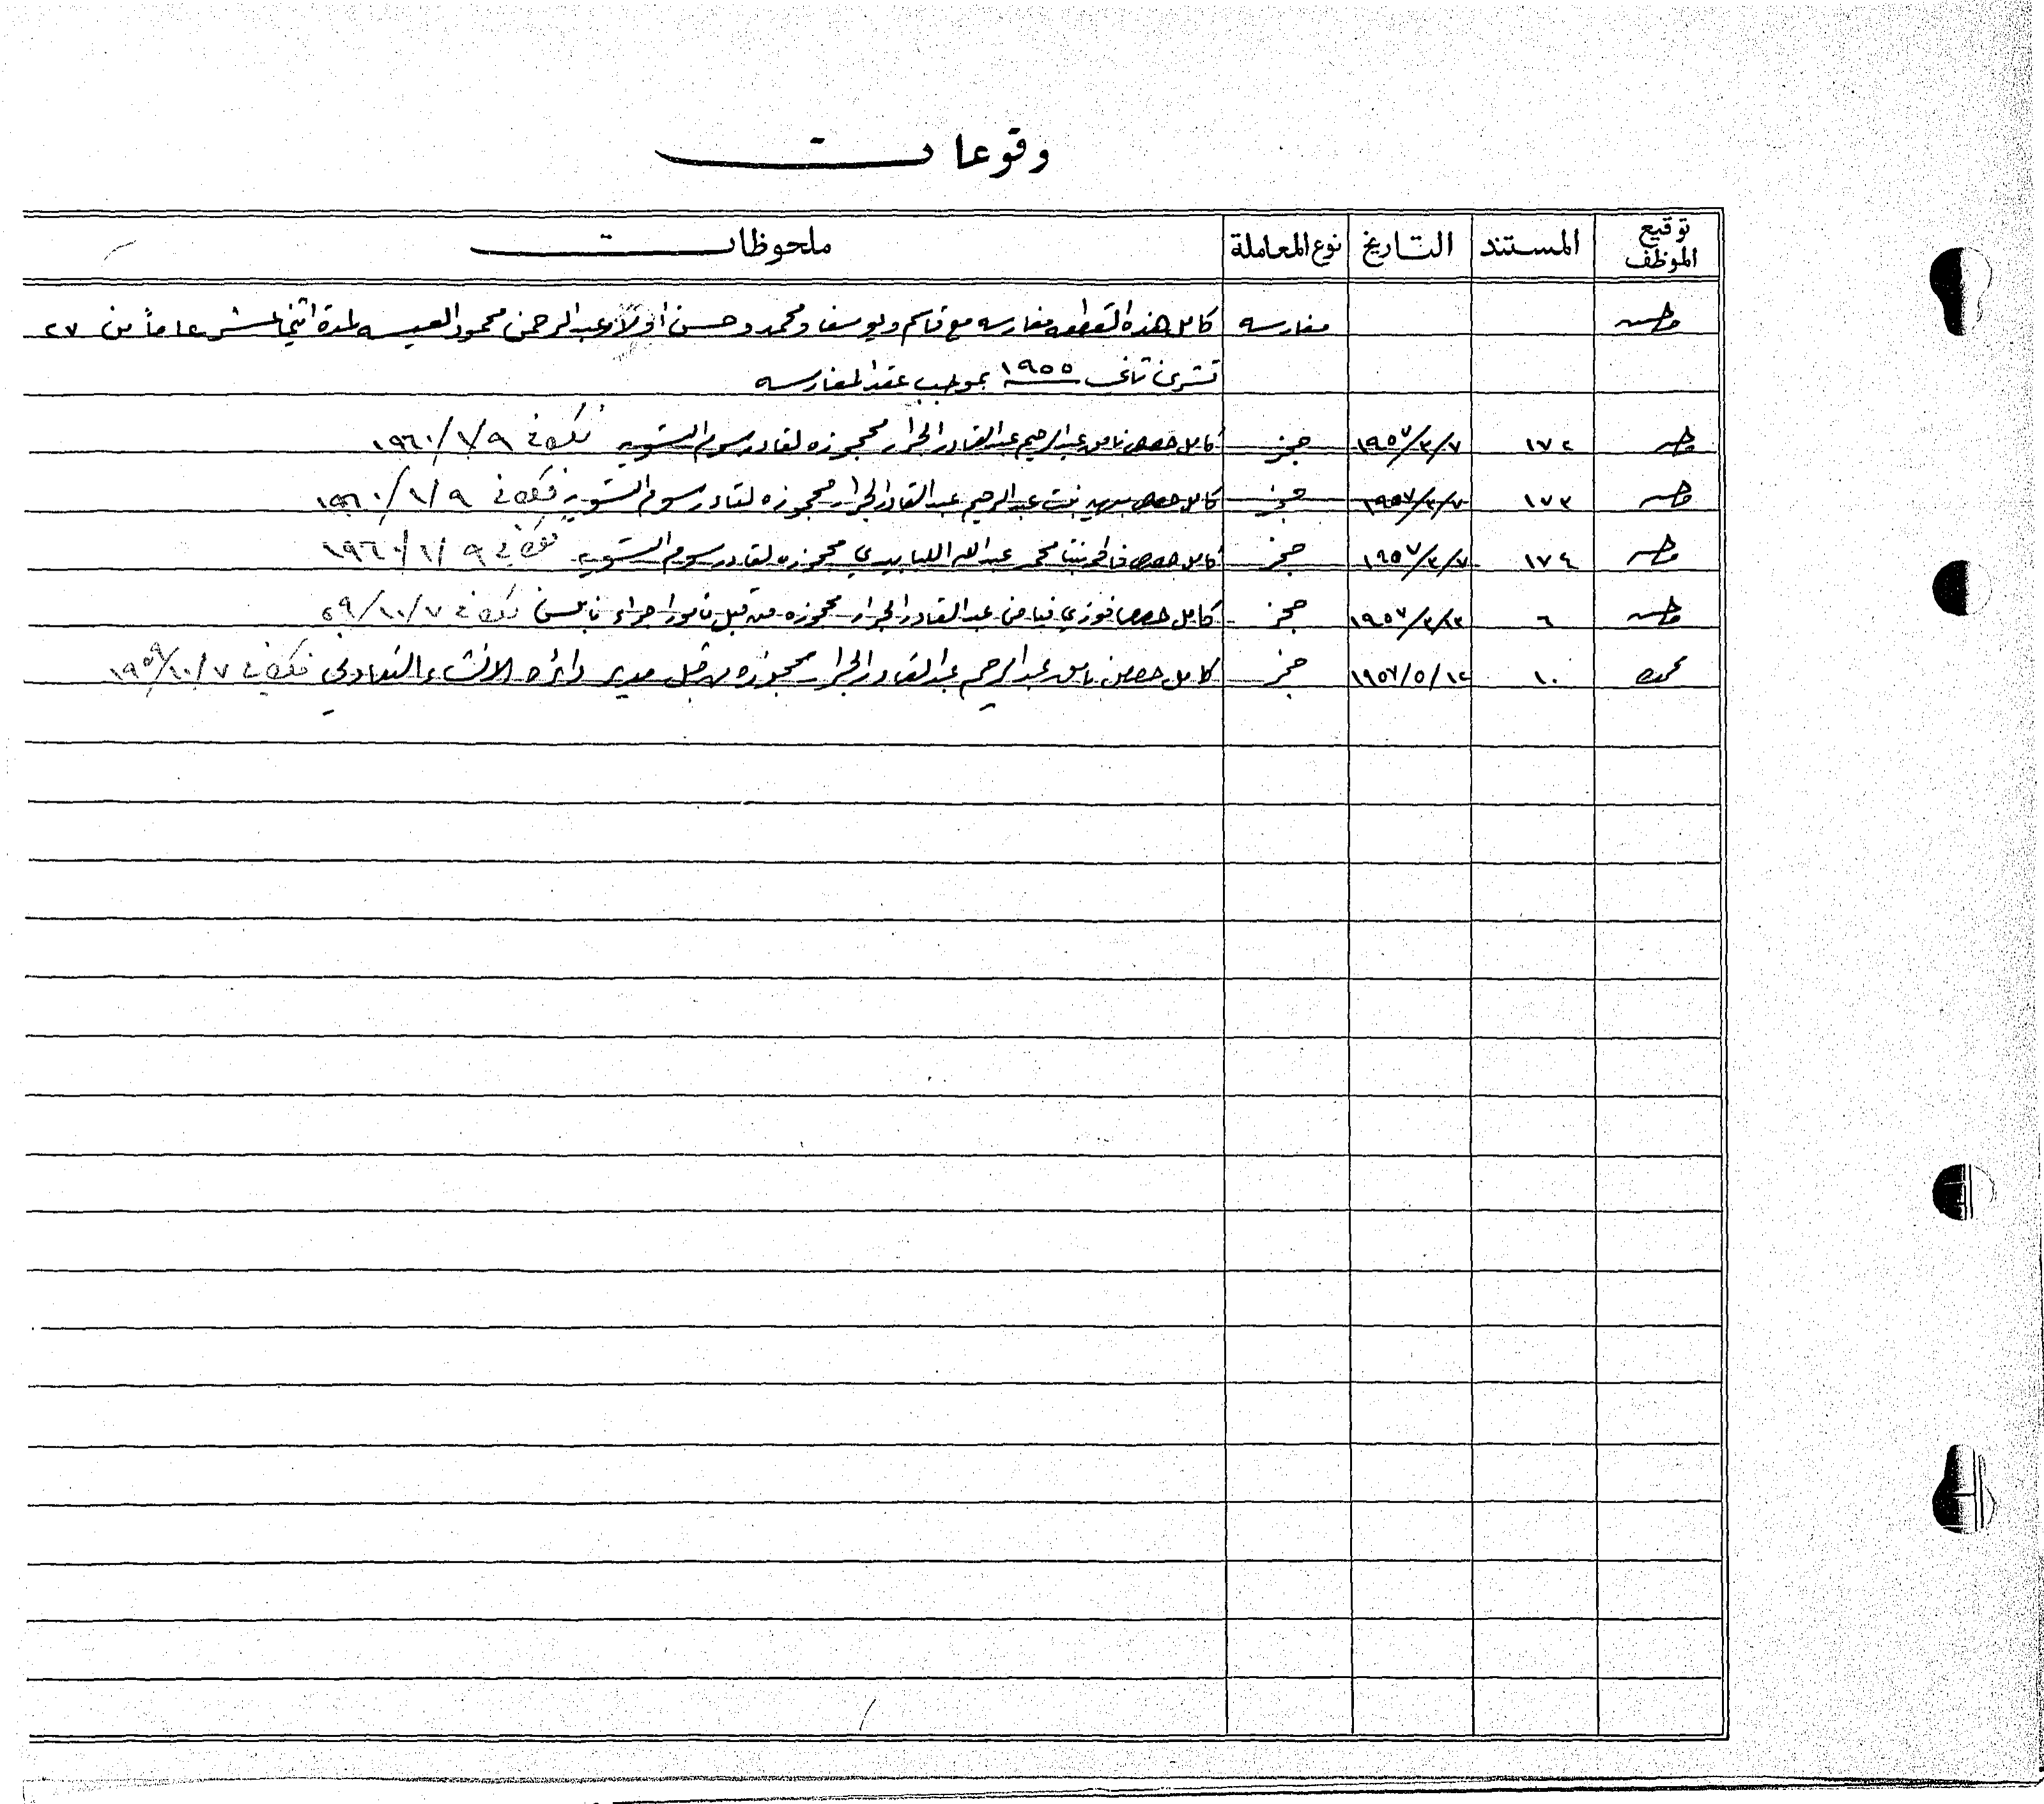 وقوعات
توقيع الموظف المستند التاريخ نوع المعاملة ملحوظات
مغارسه كامل هذه القطعه مغارسه مع قاسم ويوسف ومحمد وحسن أولاد عبد الرحمن محمود العيسه لمدة اثني عشر عاماً من ٢٧
تشرين ثاني ١٩٥٥ بموجب عقد المغارسه
١٧٢ ١٩٥٧/٣/٧ حجز كامل حصص نامق عبد الرحيم عبد القادر الجرار محجوزه لقاء رسوم التسويه فك في ١٩٦٠/١/٩
١٧٣ ١٩٥٧/٣/٧ حجز كامل حصص بنت عبد الرحيم عبد القادر الجرار محجوزه لقاء رسوم التسويه فك في ١٩٦٠/١/٩
١٧٤ ١٩٥٧/٣/٧ حجز كامل حصص فاطمه بنت محمد عبد الله اللبابيدي محجوزه لقاء رسوم التسويه فك في ١٩٦٠/١/٩
٦ ١٩٥٧/٣/١٣ حجز كامل حصص فوزي فياض عبد القادر الجرار محجوزه من قبل مأمور اجراء نابلس فك في ٥٩/١٠/٧
١٠ ١٩٥٧/٥/١٢ حجز كامل حصص نامق عبد الرحيم عبد القادر الجرار محجوزه من قبل مدير دائرة الانشاء التعاوني فك في ١٩٥٩/١٠/٧